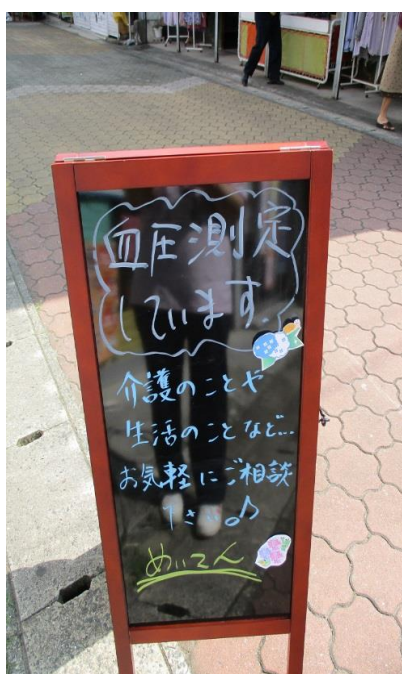 血圧測定
しています。
介護のことや
生活のことなど…
お気軽にご相談
下さい。♪
めいてん